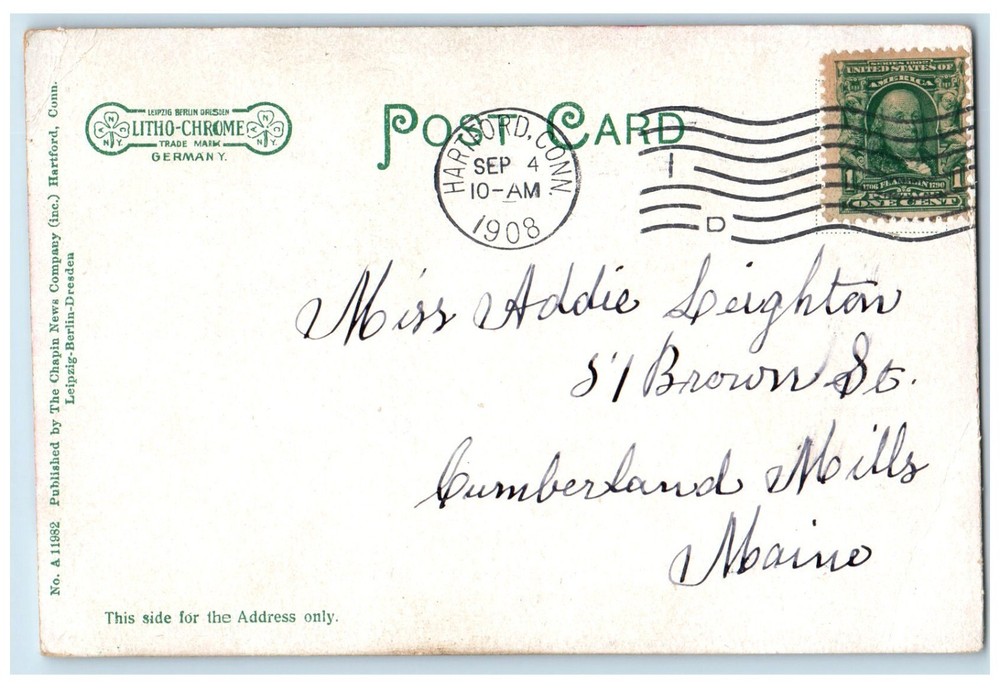 No. A 11982 Published by The Chapin News Company (inc.) Hartford, Conn.
Leipzig-Berlin-Dresden
LEIPZIG BERLIN DRESDEN
LITHO-CHROME
TRADE MARK
GERMANY.
N C G N.Y.
N C G N.Y.
POST CARD
HARTFORD, CONN.
SEP 4
10-AM
1908
1
D
SERIES 1902
UNITED STATES OF
AMERICA
1706 FRANKLIN 1790
1 1
POSTAGE
ONE CENT
Miss Addie Leighton
51 Brown St.
Cumberland Mills
Maine
This side for the Address only.